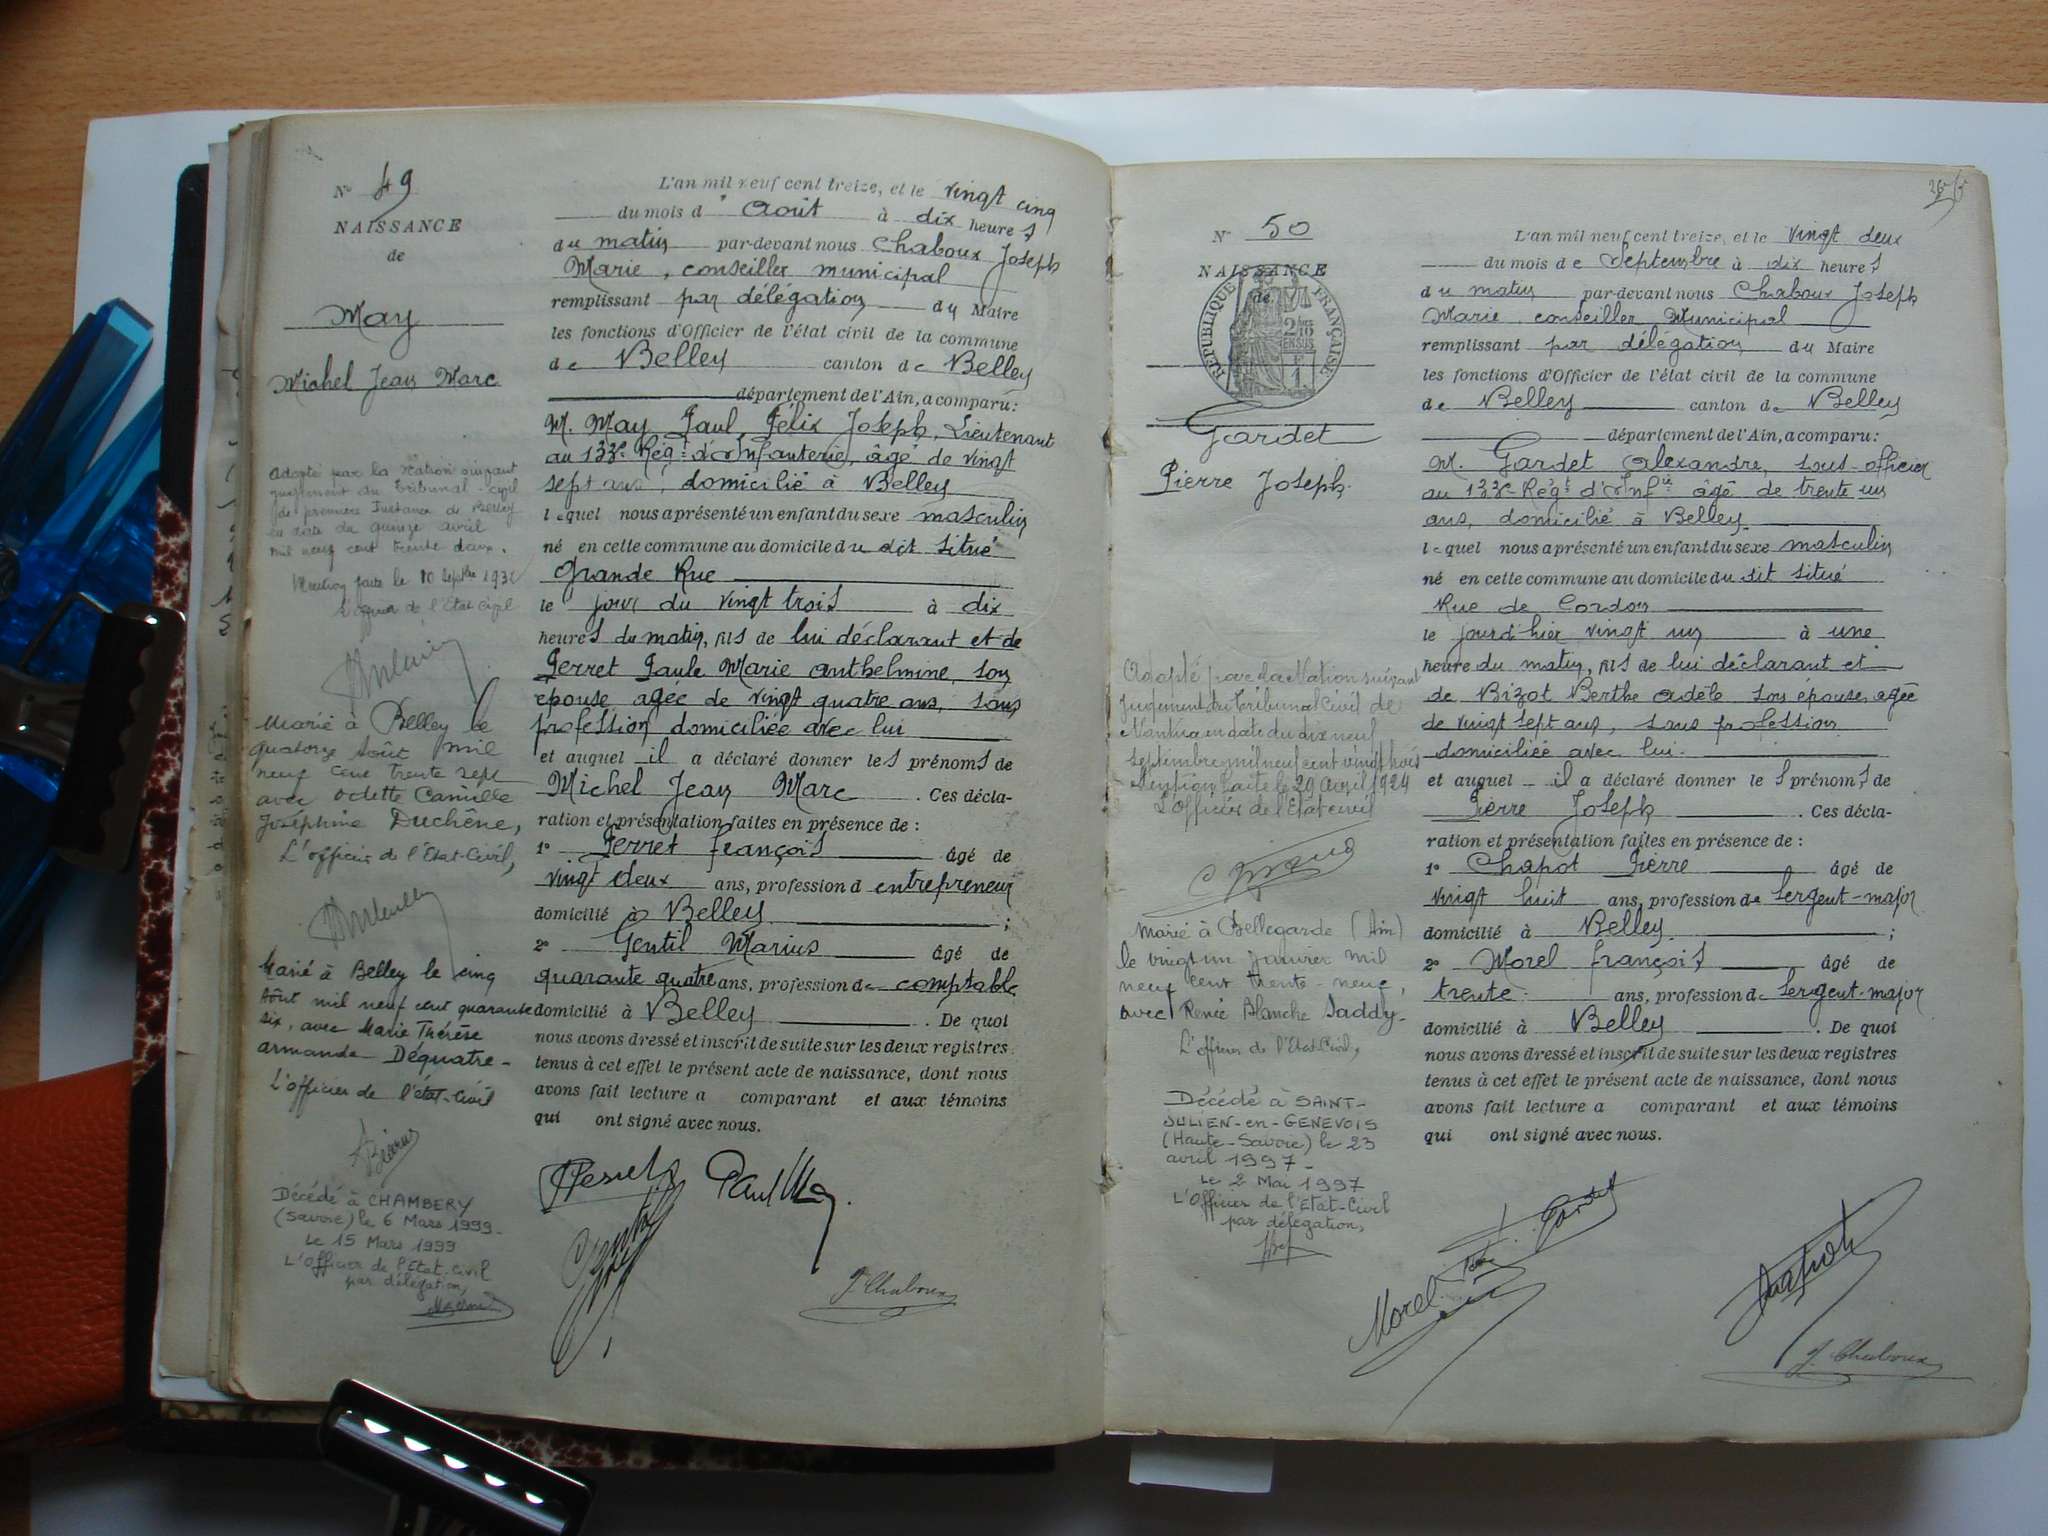 N° 49
NAISSANCE
de
May
Michel Jean Marc
Adopté par la Nation suivant
jugement du Tribunal civil
de première Instance de Belley
en date du quinze avril
mil neuf cent trente deux.
Mention faite le 10 Septbre 193
L'officier de l'Etat civil
Marié à Belley le
quatorze Août mil
neuf cent trente sept
avec Odette Camille
Joséphine Duchêne,
L'officier de l'Etat-Civil,
Marié à Belley le cinq
Août mil neuf cent quarante
six, avec Marie Thérèse
Armande Déquatre -
L'officier de l'état-Civil
Décédé à CHAMBERY
(Savoie) le 6 Mars 1999 -
Le 15 Mars 1999
L'Officier de l'Etat-Civil
par délégation,
L'an mil neuf cent treize, et le vingt cinq
du mois d'Août à dix heures
du matin par-devant nous Chaboux Joseph
Marie, conseiller municipal
remplissant par délégation du Maire
les fonctions d'Officier de l'état civil de la commune
de Belley canton de Belley
département de l'Ain, a comparu :
M. May Paul Félix Joseph, Lieutenant
au 133e Régt d'Infanterie, âgé de vingt
sept ans, domicilié à Belley
lequel nous a présenté un enfant du sexe masculin
né en cette commune au domicile du dit situé
Grande Rue
le jour du vingt trois à dix
heures du matin, fils de lui déclarant et de
Perret Paule Marie Anthelmine, son
épouse agée de vingt quatre ans, sans
profession domiciliée avec lui
et auquel il a déclaré donner les prénoms de
Michel Jean Marc . Ces décla-
ration et présentation faites en présence de :
1° Perret François âgé de
vingt deux ans, profession d entrepreneur
domicilié à Belley ;
2° Gentil Marius âgé de
quarante quatre ans, profession de comptable
domicilié à Belley . De quoi
nous avons dressé et inscrit de suite sur les deux registres
tenus à cet effet le présent acte de naissance, dont nous
avons fait lecture a comparant et aux témoins
qui ont signé avec nous.
Paul May.
J. Chaboux
N° 50
NAISSANCE
de
RÉPUBLIQUE FRANÇAISE
Gardet
Pierre Joseph.
Adopté par la Nation suivant
jugement du Tribunal Civil de
Nantua en date du dix neuf
septembre mil neuf cent vingt trois
Mention faite le 29 avril 1924
L'Officier de l'Etat civil
Marié à Bellegarde (Ain)
le vingt un Janvier mil
neuf cent trente-neuf,
avec Renée Blanche Daddy -
L'officier de l'Etat-Civil,
Décédé à SAINT-
JULIEN-en-GENEVOIS
(Haute-Savoie) le 23
avril 1997 -
Le 2 Mai 1997
L'Officier de l'Etat-Civil
par délégation,
L'an mil neuf cent treize, et le vingt deux
du mois de Septembre à dix heures
du matin par-devant nous Chaboux Joseph
Marie conseiller Municipal
remplissant par délégation du Maire
les fonctions d'Officier de l'état civil de la commune
de Belley canton de Belley
département de l'Ain, a comparu :
M. Gardet Alexandre, sous-officier
au 133e Régt d'Infie âgé de trente un
ans, domicilié à Belley
lequel nous a présenté un enfant du sexe masculin
né en cette commune au domicile du dit situé
Rue de Cordon
le jourd'hier vingt un à une
heure du matin, fils de lui déclarant et
de Bizot Berthe Adèle son épouse, agée
de vingt sept ans, sans profession
domiciliée avec lui.
et auquel il a déclaré donner les prénoms de
Pierre Joseph . Ces décla-
ration et présentation faites en présence de :
1° Chapot Pierre âgé de
vingt huit ans, profession de Sergent-major
domicilié à Belley ;
2° Morel François âgé de
trente ans, profession de Sergent-major
domicilié à Belley . De quoi
nous avons dressé et inscrit de suite sur les deux registres
tenus à cet effet le présent acte de naissance, dont nous
avons fait lecture a comparant et aux témoins
qui ont signé avec nous.
Gardet
Morel
Chapot
J. Chaboux